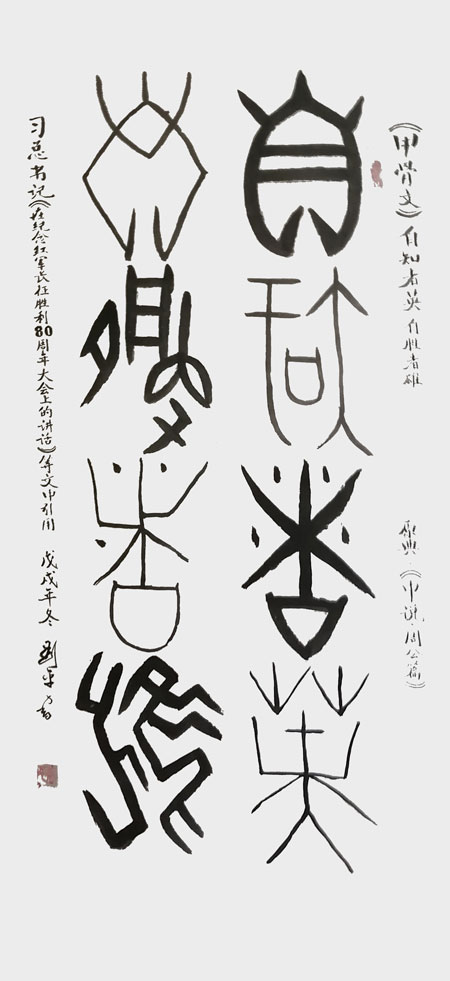 《甲骨文》自知者英 自胜者雄 原典:《中说·周公篇》
自知者英
自胜者雄
习总书记《在纪念红军长征胜利80周年大会上的讲话》等文中引用 戊戌年冬 劉平